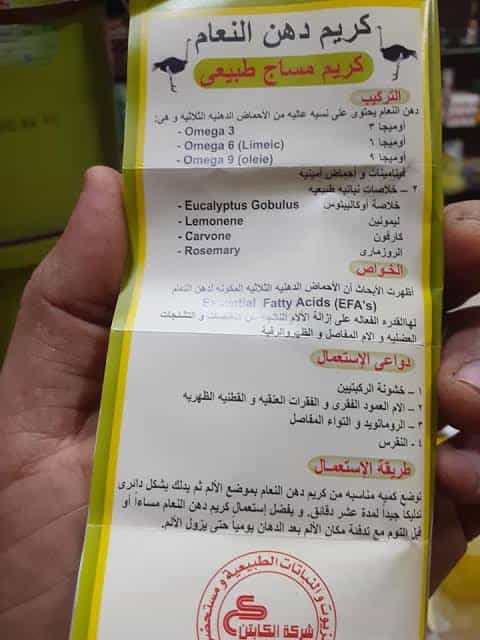 كريم دهن النعام
كريم مساج طبيعى
التركيب
دهن النعام يحتوى على نسبه عاليه من الأحماض الدهنيه الثلاثيه و هى:
أوميجا ٣ - Omega 3
أوميجا ٦ - Omega 6 (Limeic)
أوميجا ٩ - Omega 9 (oleie)
فيتامينات و أحماض أمينيه
٢ – خلاصات نباتيه طبيعيه
خلاصة أوكاليبتوس - Eucalyptus Gobulus
ليمونين - Lemonene
كارفون - Carvone
الروزمارى - Rosemary
الخواص
أظهرت الأبحاث أن الأحماض الدهنيه الثلاثيه المكونه لدهن النعام
Essential Fatty Acids (EFA's)
لهاالقدره الفعاله على إزالة الألام الناتجه عن و التشنجات
العضليه و الام المفاصل و الظهر والرقبة
دواعى الإستعمال
١ – خشونة الركبتيين
٢ – الام العمود الفقرى و الفقرات العنقيه و القطنيه الظهريه
٣ – الروماتويد و التواء المفاصل
٤ - النقرس
طريقة الإستعمـال
توضع كميه مناسبه من كريم دهن النعام بموضع الألم ثم يدلك بشكل دائرى
تدليكا جيداً لمدة عشر دقائق. و يفضل إستعمال كريم دهن النعام مساءاً أو
قبل النوم مع تدفئة مكان الألم بعد الدهان يومياً حتى يزول الألم.
زيوت و النباتات الطبيعية و
شركة الكابتن